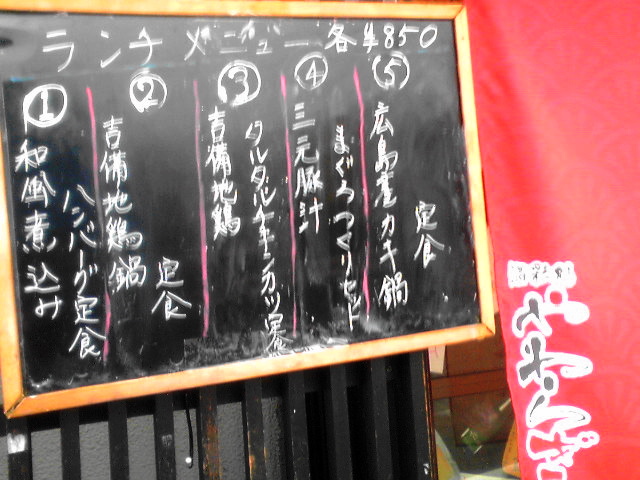 ランチメニュー各¥850
①
和風煮込み
ハンバーグ定食
②
吉備地鶏鍋
定食
③
吉備地鶏
タルタルチキンカツ定食
④
三元豚汁
まぐろづくりセット
⑤
広島産カキ鍋
定食